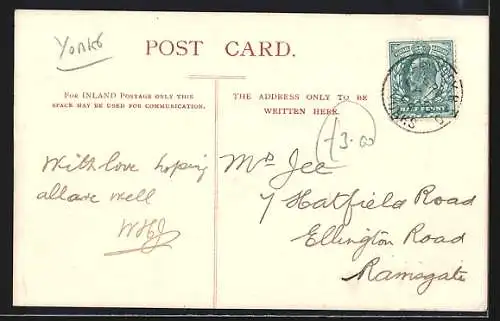 Yorks
POST CARD.
FOR INLAND POSTAGE ONLY THIS
SPACE MAY BE USED FOR COMMUNICATION.
THE ADDRESS ONLY TO BE
WRITTEN HERE.
£3.00
With love hoping
all are well
WHJ
Mr Jee
7 Hatfield Road
Ellington Road
Ramsgate